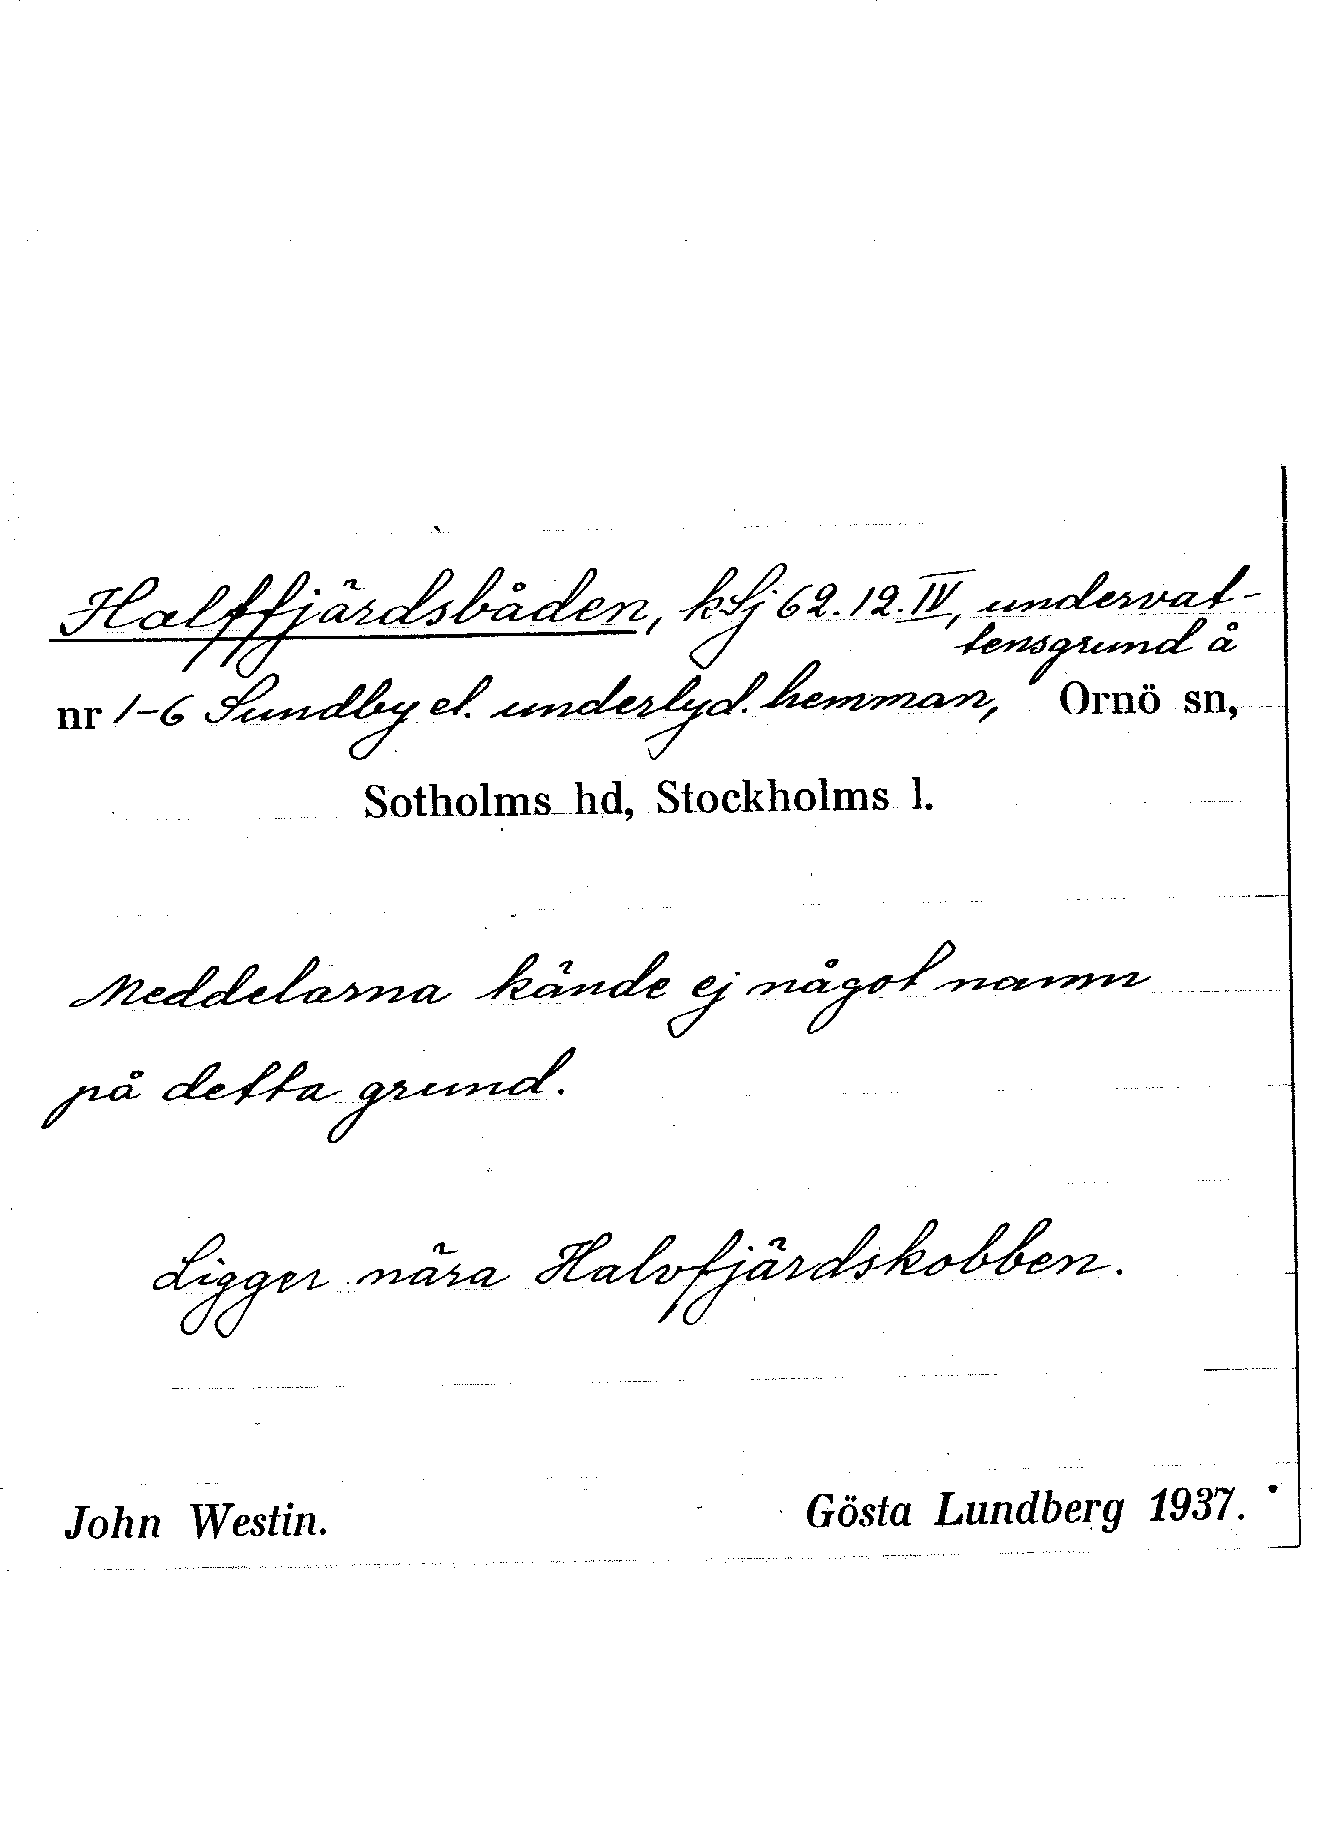 Halffjärdsbåden, kSj 62.12.IV, undervat-
tensgrund å
nr 1-6 Sundby el. underlyd. hemman, Ornö sn,
Sotholms hd, Stockholms l.
Meddelarna kände ej något namn
på detta grund.
Ligger nära Halvfjärdskobben.
John Westin. Gösta Lundberg 1937.